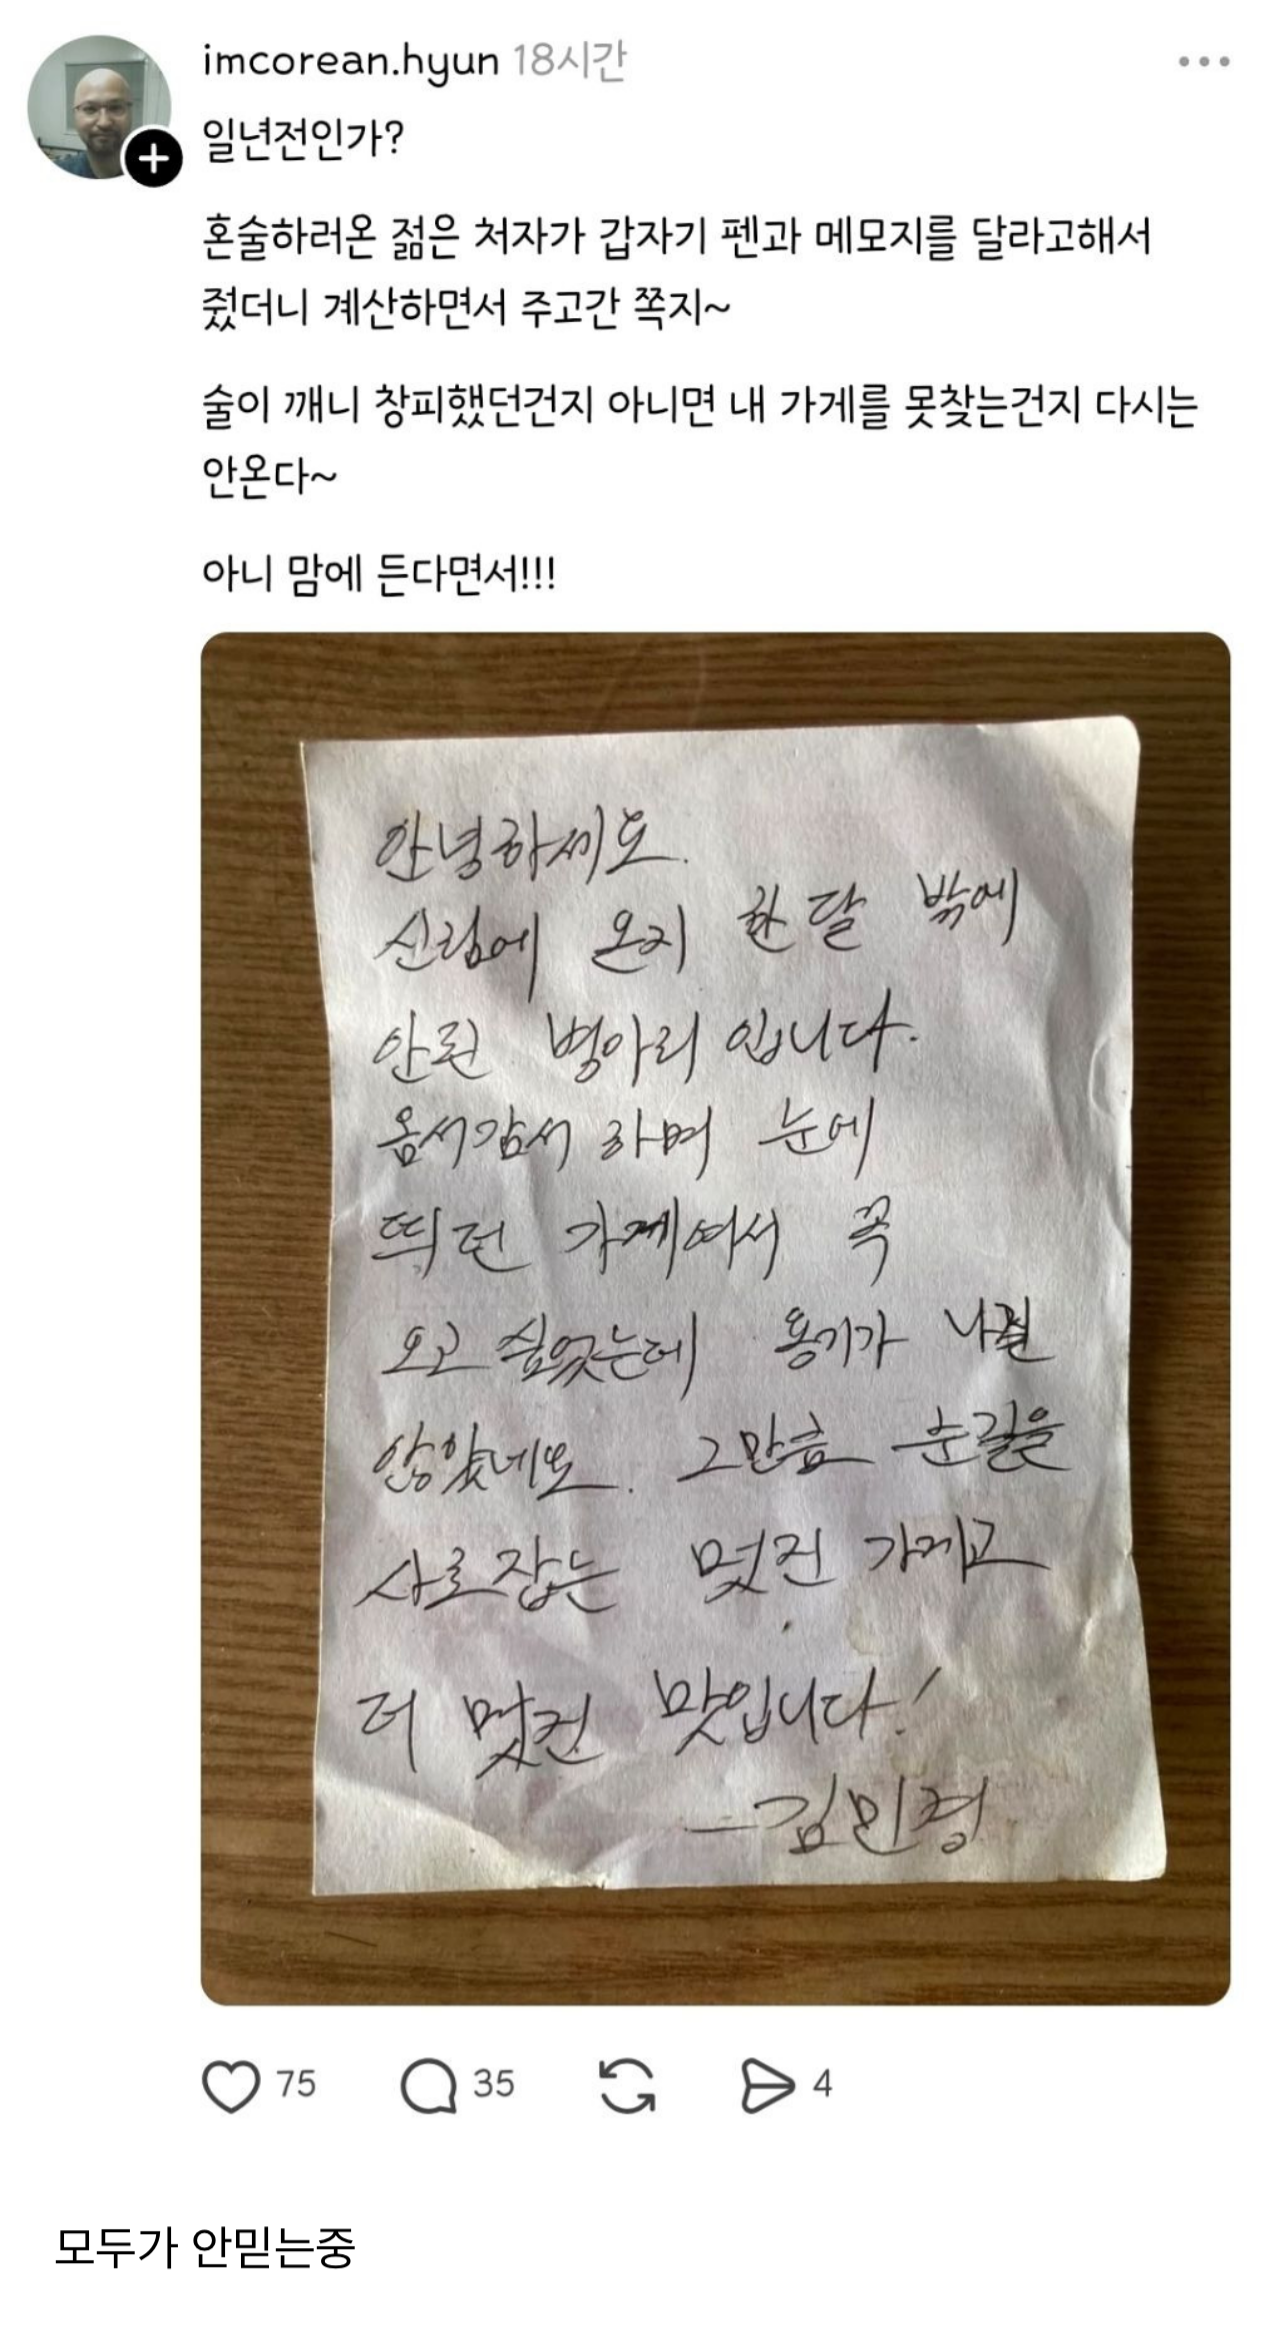 imcorean.hyun 18시간
일년전인가?
혼술하러온 젊은 처자가 갑자기 펜과 메모지를 달라고해서
줬더니 계산하면서 주고간 쪽지~
술이 깨니 창피했던건지 아니면 내 가게를 못찾는건지 다시는
안온다~
아니 맘에 든다면서!!!
안녕하세요.
신림에 온지 한달 밖에
안된 병아리 입니다.
옴서감서 하며 눈에
띄던 가게여서 꼭
오고 싶었는데 용기가 나질
않았네요. 그만큼 눈길을
사로잡는 멋진 가게고
더 멋진 맛입니다!
-김민정
75
35
4
모두가 안믿는중